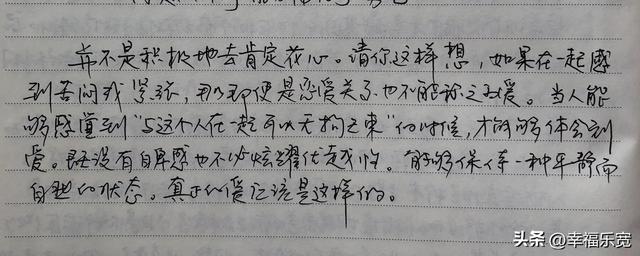 并不是积极地去肯定花心。请你这样想，如果在一起感
到苦闷或紧张，那即便是恋爱关系也不能称之为爱。当人能
够感觉到“与这个人在一起可以无拘无束”的时候，才能够体会到
爱。既没有自卑感也不必炫耀优越性。能够保持一种平静而
自然的状态。真正的爱应该是这样的。
头条@幸福乐宽